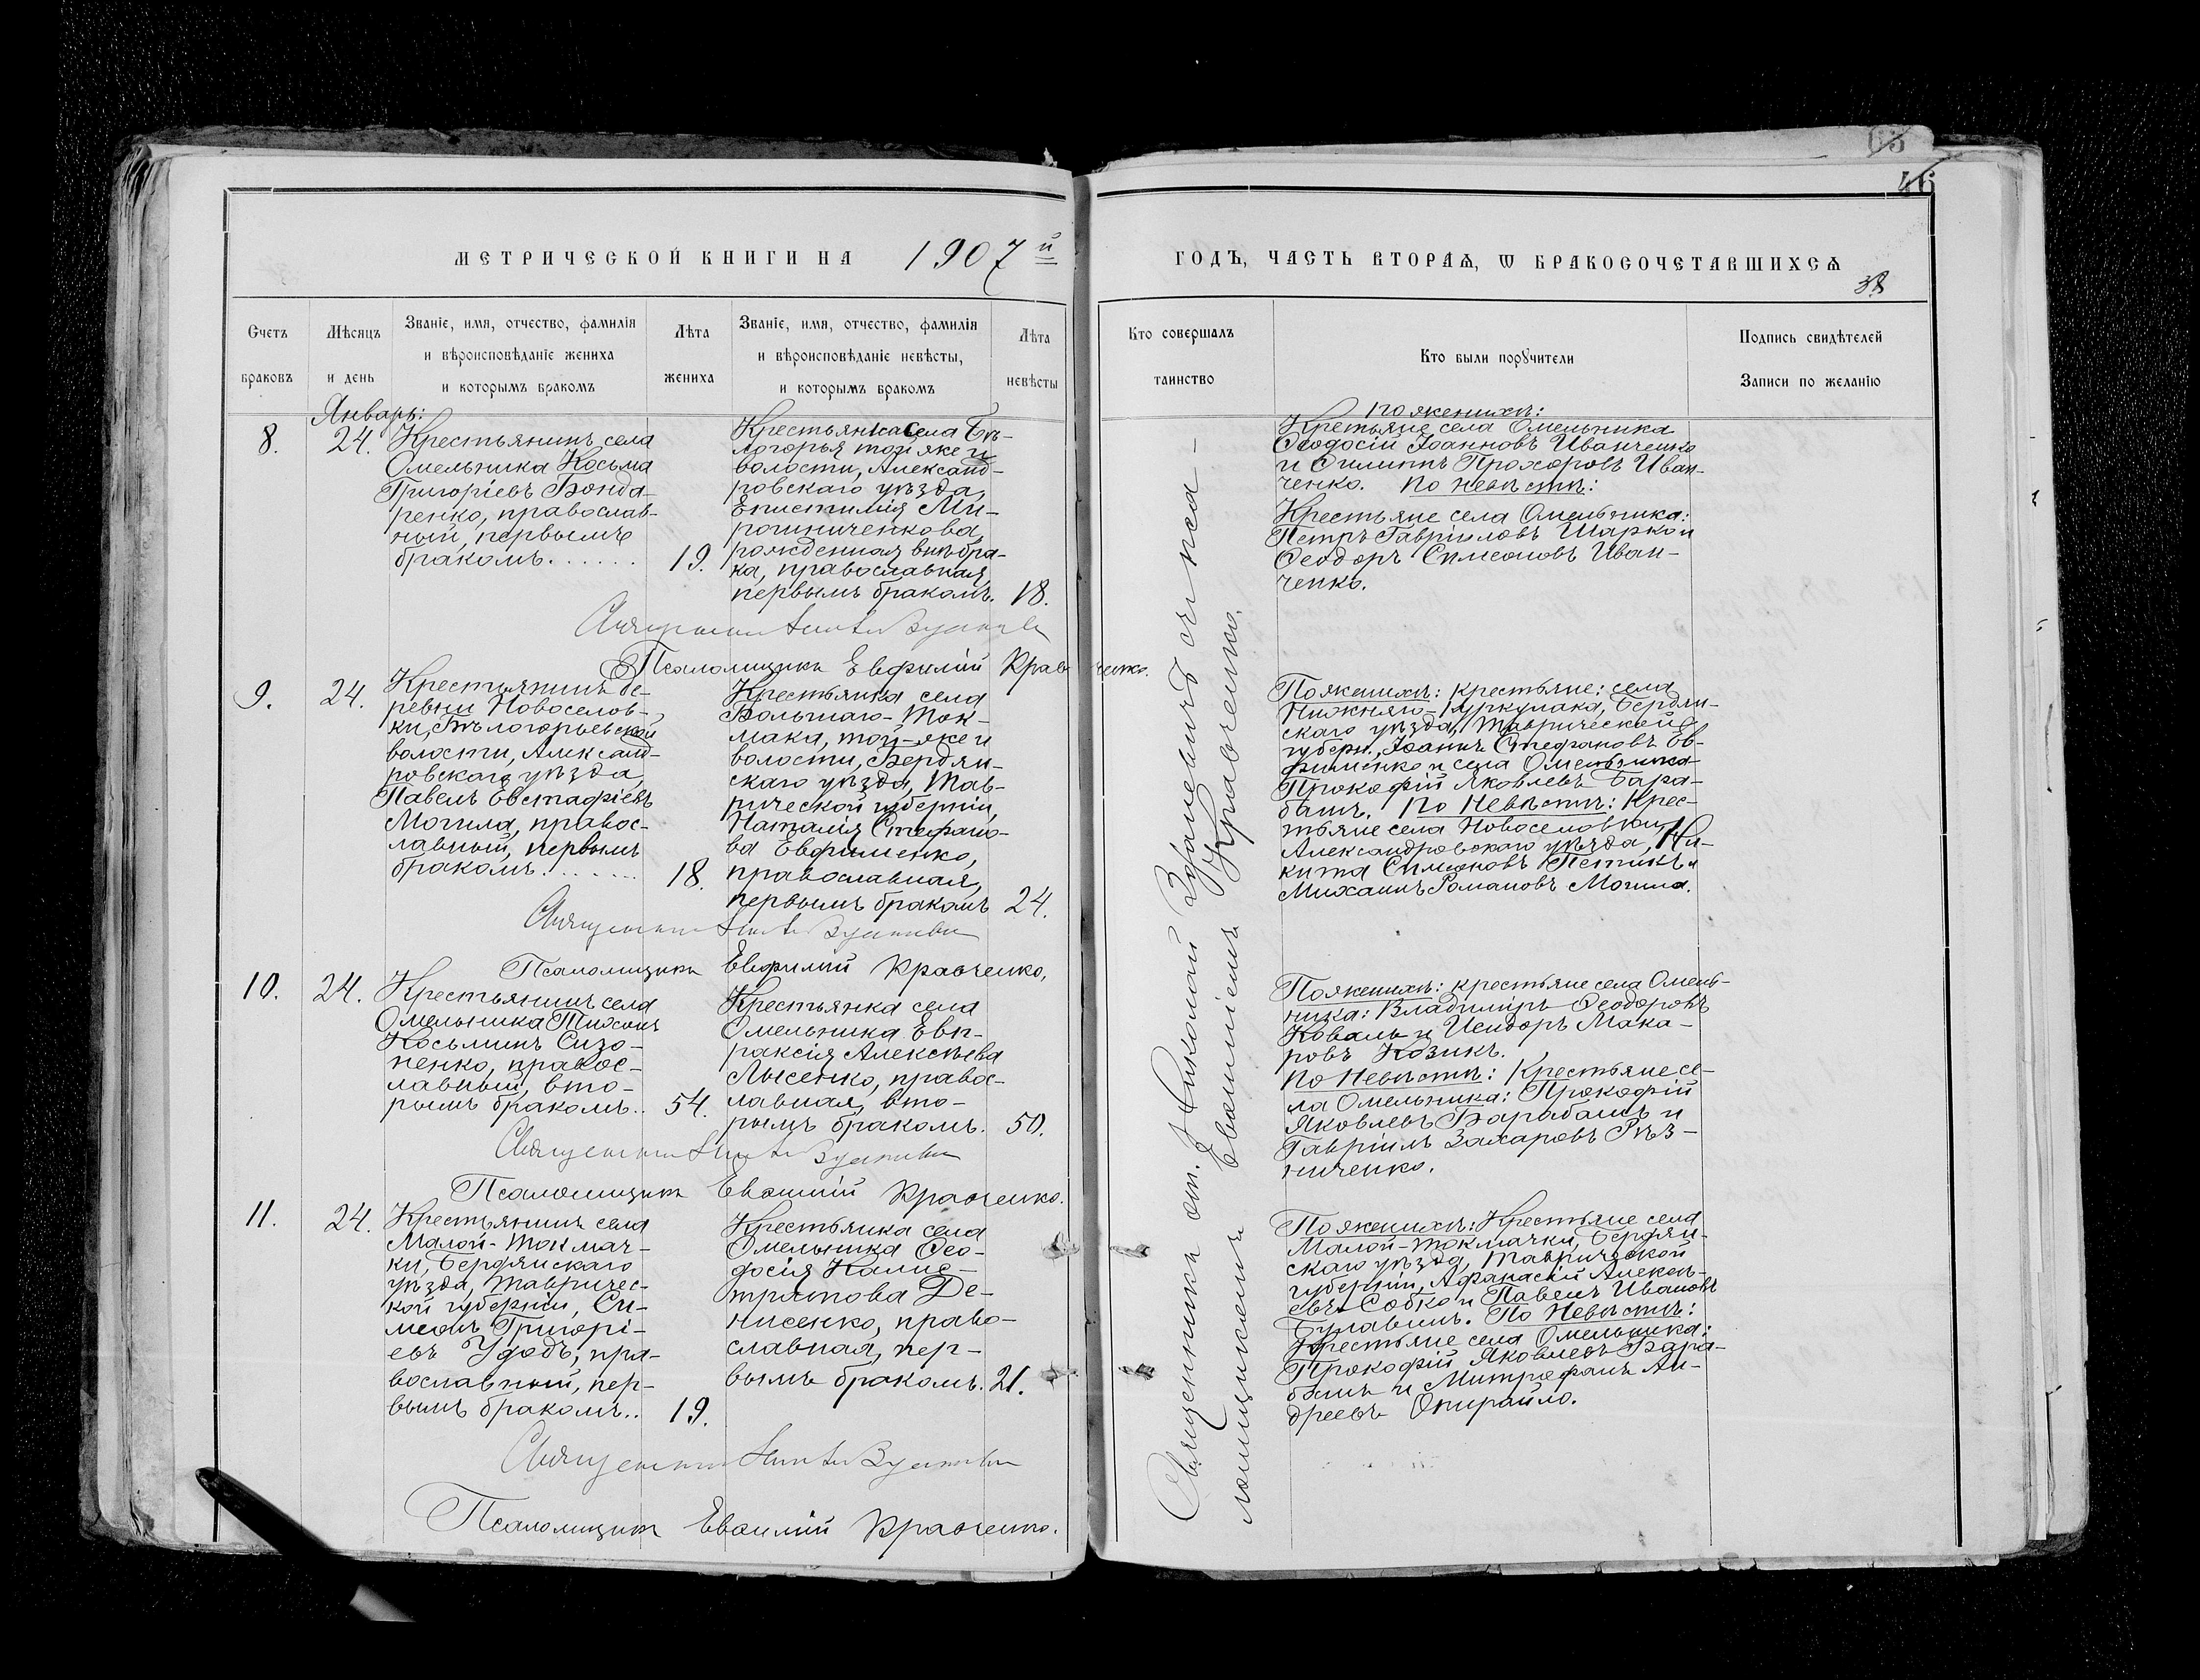 65
46
МЕТРИЧЕСКОЙ КНИГИ НА 1907й
ГОДЪ, ЧАСТЬ ВТОРАЯ, Ѡ БРАКОСОЧЕТАВШИХСЯ
38
Счетъ
браковъ
Мѣсяцъ
и день
Званіе, имя, отчество, фамилія
и вѣроисповѣданіе жениха
и которымъ бракомъ
Лѣта
жениха
Званіе, имя, отчество, фамилія
и вѣроисповѣданіе невѣсты,
и которымъ бракомъ
Лѣта
невѣсты
Кто совершалъ
таинство
Кто были порꙋчители
Подпись свидѣтелей
Записи по желанію
Январь:
8.
24.
Крестьянинъ села
Омельника Косьма
Григоріевъ Бонда-
ренко, православ-
ный, первымъ
бракомъ......
19.
Крестьянка села Бѣ-
логорья той же
волости, Александ-
ровскаго уѣзда,
Епистилія Ми-
рошниченкова,
рожденная внѣ бра-
ка, православная,
первымъ бракомъ.
18.
По женихѣ:
Крестьяне села Омельника
Ѳеодосій Іоанновъ Иванченко
и Филиппъ Прохоровъ Иван-
ченко. По невѣстѣ:
Крестьяне села Омельника:
Петръ Гавріиловъ Шарко и
Ѳеодоръ Симеоновъ Иван-
ченко.
Псаломщикъ Евфимій Кравченко.
9.
24.
Крестьянинъ де-
ревни Новоселов-
ки, Бѣлогорьевской
волости, Александ-
ровскаго уѣзда,
Павелъ Евстафіевъ
Могила, правос-
лавный, первымъ
бракомъ.......
18.
Крестьянка села
Большаго-Ток-
мака, той-же
волости, Бердян-
скаго уѣзда, Тав-
рической губерніи,
Наталія Стефано-
ва Евфименко,
православная,
первымъ бракомъ
24.
По женихѣ: крестьяне: села
Нижняго-Куркулака, Бердян-
скаго уѣзда, Таврической
губерн., Іоаннъ Стефановъ Ев-
фименко и села Омельника
Прокофій Яковлевъ Бара-
башъ. По Невѣстѣ: Крес-
тьяне села Новоселовки,
Александровскаго уѣзда, Ни-
кита Симеоновъ Петикъ и
Михаилъ Романовъ Могила.
Священникъ
Псаломщикъ Евфимій Кравченко.
10.
24.
Крестьянинъ села
Омельника Тихонъ
Косьминъ Сизо-
ненко, правос-
лавный, вто-
рымъ бракомъ..
54.
Крестьянка села
Омельника Евп-
раксія Алексѣева
Лысенко, правос-
лавная, вто-
рымъ бракомъ.
50.
По женихѣ: крестьяне села Омель-
ника: Владиміръ Ѳеодоровъ
Коваль и Исидоръ Мака-
ровъ Козикъ.
По Невѣстѣ: Крестьяне се-
ла Омельника: Прокофій
Яковлевъ Барабашъ и
Гавріилъ Захаровъ Рѣз-
ниченко.
Священникъ
Псаломщикъ Евѳимій Кравченко.
11.
24.
Крестьянинъ села
Малой-Токмач-
ки, Бердянскаго
уѣзда, Тавричес-
кой губерніи, Си-
меонъ Григорі-
евъ Удодъ, пра-
вославный, пер-
вымъ бракомъ..
19.
Крестьянка села
Омельника Ѳео-
досія Калис-
тратова Де-
нисенко, право-
славная, пер-
вымъ бракомъ.
21.
По женихѣ: Крестьяне села
Малой-Токмачки, Бердян-
скаго уѣзда, Таврической
губерніи, Афанасій Алексѣ-
евъ Собко и Павелъ Ивановъ
Булавинъ. По Невѣстѣ:
Крестьяне села Омельника:
Прокофій Яковлевъ Бара-
башъ и Митрофанъ Ан-
дреевъ Опирайло.
Священникъ
Псаломщикъ Евѳимій Кравченко.
Священникъ от. Николай съ пса-
ломщикомъ Евѳиміемъ Кравченко.